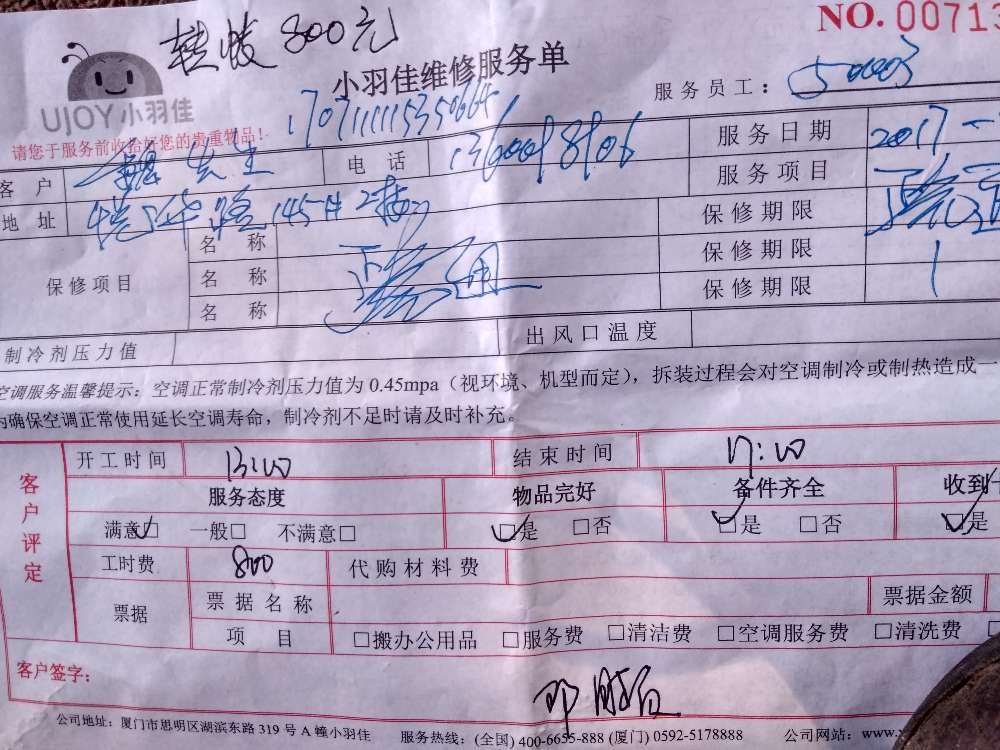 转账800元
NO. 00713
小羽佳维修服务单
UJOY小羽佳
服务员工：50003
请您于服务前收拾好您的贵重物品！
客 户 先生 电 话 服务日期 2017
地 址 服务项目
保修项目 名 称 保修期限
名 称 保修期限
名 称 保修期限 1
制冷剂压力值 出风口温度
空调服务温馨提示：空调正常制冷剂压力值为 0.45mpa（视环境、机型而定），拆装过程会对空调制冷或制热造成一
为确保空调正常使用延长空调寿命，制冷剂不足时请及时补充。
客户评定
开工时间 13:00 结束时间 17:00
服务态度 物品完好 备件齐全 收到
满意□ 一般□ 不满意□ □是 □否 □是 □否 □是
工时费 800 代购材料费
票据 票据名称 票据金额
项 目 □搬办公用品 □服务费 □清洁费 □空调服务费 □清洗费
客户签字：
公司地址：厦门市思明区湖滨东路 319 号 A 幢小羽佳 服务热线：(全国) 400-6655-888 (厦门) 0592-5178888 公司网站：www.